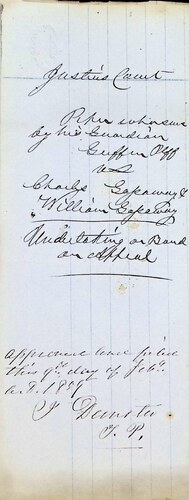 Justices Court
Peter
by his Guardian
Griffin Plff
vs
Charles Gapaway &
William Gapaway
Undertaking or Bond
on Appeal
Approved and filed
this 9th day of Feby
A.D. 1859
J. P.